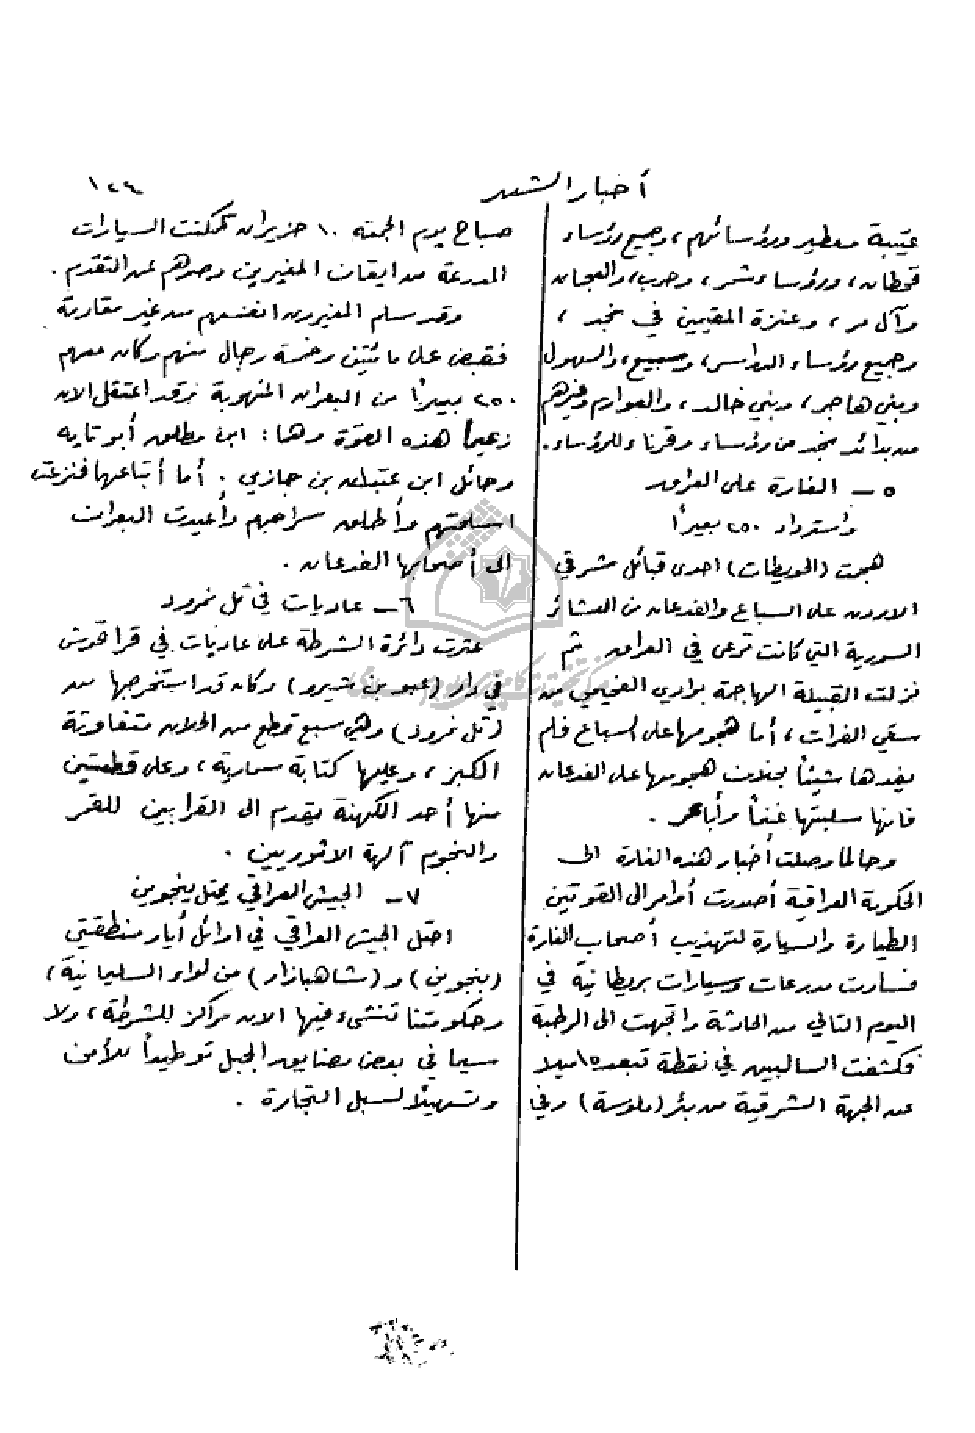 أخبار الشهر
١٢٩
عتيبة ومطير ورؤسائهم، وجميع رؤساء
قحطان، ورؤساء شمر، وحرب، والعجمان
وآل مر، وعنزة المقيمين في نجد،
وجميع رؤساء الدواسر، وسبيع، والسهول
وبني هاجر، وبني خالد، والعوازم وغيرهم
من بدائد نجد من رؤساء وقرناء للرؤساء.
٥ — الغارة على العراق
واسترداد ٢٥٠ بعيراً
هجمت (الحويطات) احدى قبائل مشرقي
الاردن على السباع والفدعان من العشائر
السورية التي كانت ترعى في العراق ثم
نزلت القبيلة المهاجمة بوادي الغيمي من
سقي الفرات، أما هجومها على السباع فلم
يفدها شيئاً بخلاف هجومها على الفدعان
فانها سلبتها غنماً وأباعر.
وحالما وصلت أخبار هذه الغارة الى
الحكومة العراقية أصدرت أوامر الى القوتين
الطيارة والسيارة لتهذيب أصحاب الغارة
فسارت مدرعات وسيارات بريطانية في
اليوم التالي من الحادثة واتجهت الى الرطبة
فكشفت السالبين في نقطة تبعد ١٥ ميلا
عن الجهة الشرقية من بئر (ملوسة) وفي
صباح يوم الجمعة ١٠ حزيران تمكنت السيارات
المدرعة من ايقاف المغيرين وصدهم عن التقدم.
وقد سلم المغيرون انفسهم من غير مقاومة
فقبض على مائتين وخمسة رجال منهم وكان معهم
٢٥٠ بعيراً من البعران المنهوبة وقد اعتقل الآن
زعيما هذه القوة وهما: ابن مطلق أبو تايه
وحائل ابن عبدالله بن جازي. أما أتباعها فنزعت
اسلحتهم وأطلق سراحهم وأعيدت البعران
الى أصحابها الفدعان.
٦ — عاديات في تل نمرود
عثرت دائرة الشرطة على عاديات في قراقوش
في دار (عبو بن شيرو) وكان قد استخرجها من
(تل نمرود) وهي سبع قطع من الحلان متفاوتة
الكبر، وعليها كتابة مسمارية، وعلى قطعتين
منها أحد الكهنة يقدم الى القرابين للقمر
والنجوم آلهة الاثوريين.
٧ — الجيش العراقي يحتل پنجوين
احتل الجيش العراقي في اوائل أيار منطقتي
(پنجوين) و (شاهبازار) من لواء السليمانية،
وحكومتنا تنشىء فيها الان مراكز للشرطة، ولا
سيما في بعض مضايق الجبل توطيداً للأمن
وتسهيلاً لسبل التجارة.